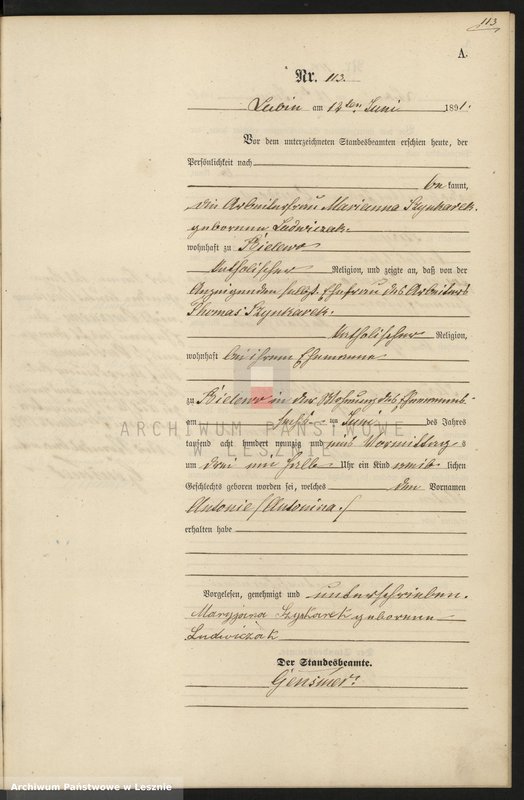 113
A.
Nr. 113.
Lubin am 12ten Juni 1891.
Vor dem unterzeichneten Standesbeamten erschien heute, der
Persönlichkeit nach
be kannt,
die Arbeiterfrau Marianna Szynkarek
geborenen Ludwiczak
wohnhaft zu Bielewo
katholischer Religion, und zeigte an, daß von der
Anzeigenden selbst, Ehefrau des Arbeiters
Thomas Szynkarek.
katholischer Religion,
wohnhaft bei ihrem Ehemanne
zu Bielewo in der Wohnung des Ehemannes
am sechs ten Juni des Jahres
tausend acht hundert neunzig und eins Vormittag s
um drei ein halb Uhr ein Kind weib lichen
Geschlechts geboren worden sei, welches den Vornamen
Antonie (Antonina.)
erhalten habe
Vorgelesen, genehmigt und unterschrieben.
Maryjana Szykarek geborene
Ludwiczak
Der Standesbeamte.
Gensmer
ARCHIWUM PAŃSTWOWE
W LESZNIE
Archiwum Państwowe w Lesznie